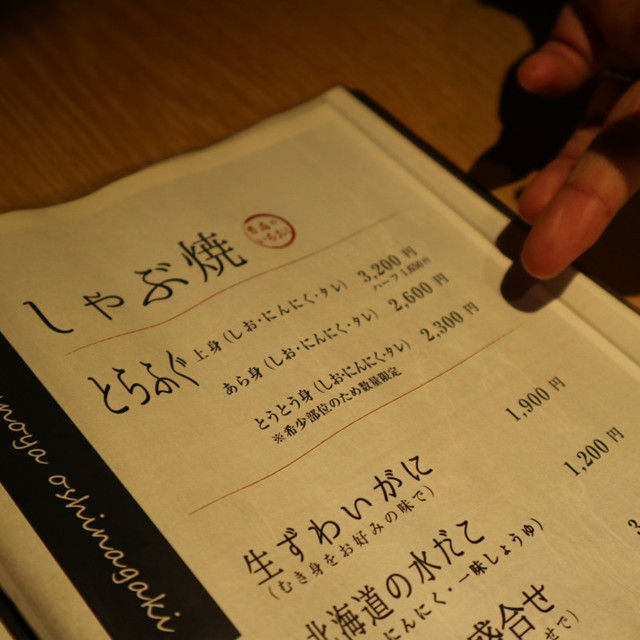 しゃぶ焼
とらふぐ
上身(しお・にんにく・タレ) 3,200円
ハーフ1,800円
あら身(しお・にんにく・タレ) 2,600円
とうとう身(しお・にんにく・タレ) 2,300円
※希少部位のため数量限定
生ずわいがに 1,900円
(むき身をお好みの味で)
北海道の水だこ 1,200円
にんにく・一味しょうゆ)
盛合せ 3
せて)
noya oshinagaki